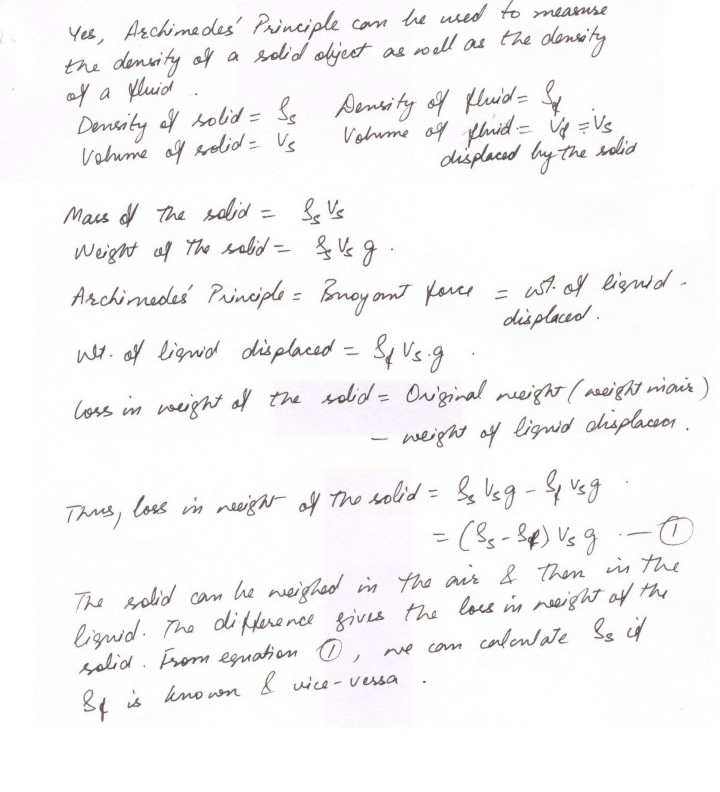 Yes, Archimedes' Principle can be used to measure
the density of a solid object as well as the density
of a fluid.
Density of solid = ρs Density of fluid = ρf
Volume of solid = Vs Volume of fluid = Vf = Vs
displaced by the solid
Mass of the solid = ρs Vs
Weight of the solid = ρs Vs g.
Archimedes' Principle = Buoyant force = wt. of liquid
displaced.
wt. of liquid displaced = ρf Vs.g.
Loss in weight of the solid = Original weight (weight in air)
- weight of liquid displaced.
Thus, loss in weight of the solid = ρs Vs g - ρf Vs g
= (ρs - ρf) Vs g. — ①
The solid can be weighed in the air & then in the
liquid. The difference gives the loss in weight of the
solid. From equation ①, we can calculate ρs if
ρf is known & vice-versa.